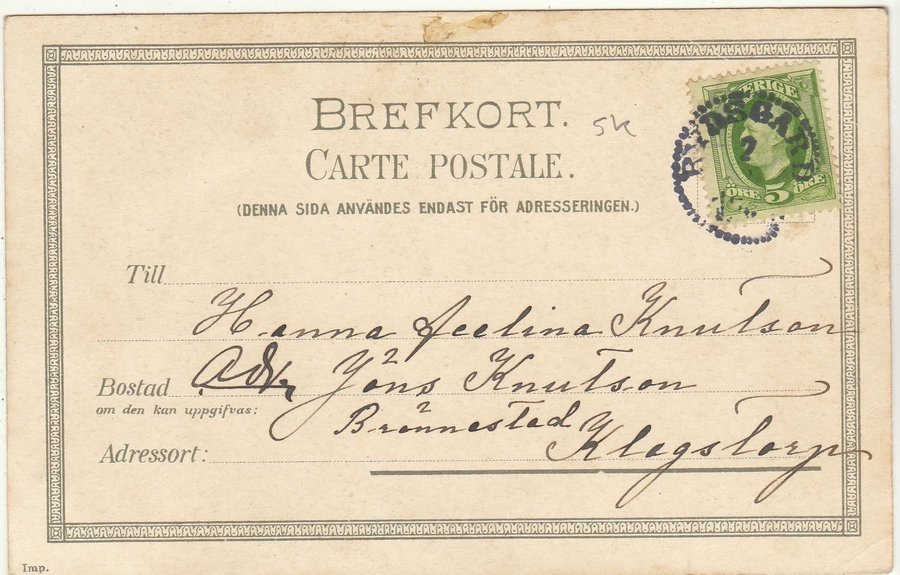 BREFKORT.
5K
CARTE POSTALE.
(DENNA SIDA ANVÄNDES ENDAST FÖR ADRESSERINGEN.)
SVERIGE
RYDSGÅRD
2
ÖRE 5 ÖRE
Till
Hanna Knutson
Bostad Adr. Jöns Knutson
om den kan uppgifvas:
Brönnestad
Adressort: Klagstorp
Imp.